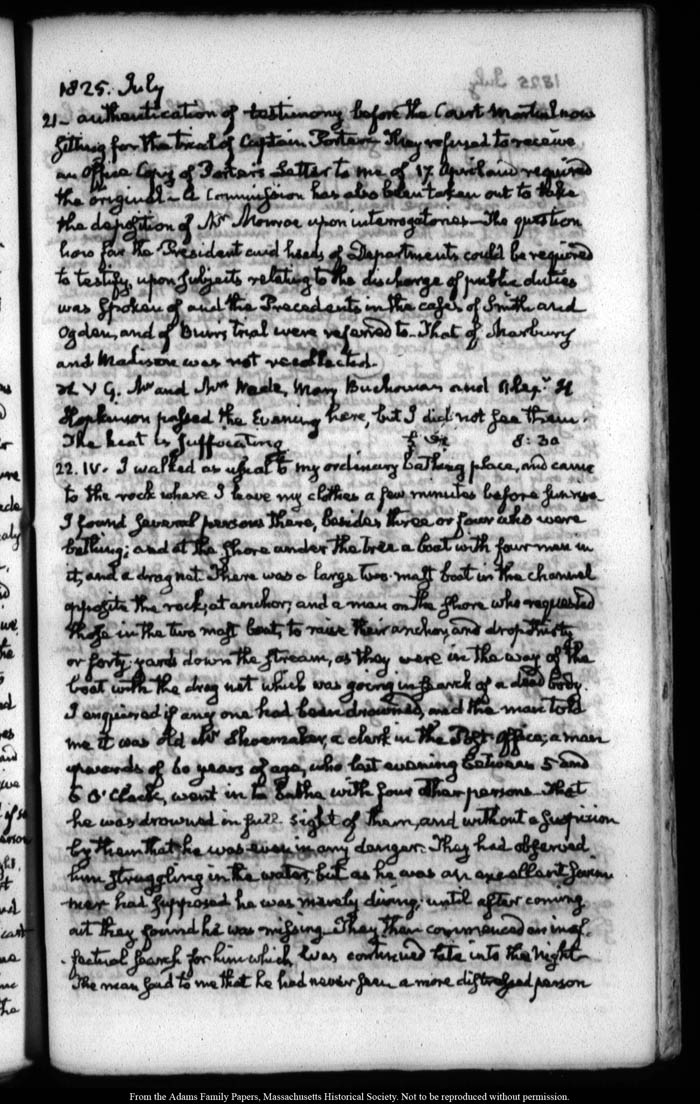 1825. July
21- authentication of testimony before the Court Martial now
sitting for the trial of Captain Porter- They refused to receive
an Office Copy of Porter's Letter to me of 17 April and required
the original- A Commission has also been taken out to take
the deposition of Mr Monroe upon interrogatories- The question
how far the President and heads of Departments could be required
to testify, upon subjects relating to the discharge of public duties
was spoken of and the Precedents in the cases of Smith and
Ogden, and of Burr's trial were referred to- That of Marbury
and Madison was not recollected-
Mr and Mrs Wade, Mary Buchanan and H
Hopkinson passed the Evening here, but I did not see them.
The heat is suffocating 8:30
22. IV. I walked as usual to my ordinary bathing place, and came
to the rock where I leave my clothes a few minutes before sunrise
I found several persons there, besides three or four who were
bathing; and at the shore under the tree a boat with four men in
it, and a drag net. There was a large two mast boat in the channel
opposite the rock, at anchor; and a man on the shore who requested
those in the two mast boat, to raise their anchor, and drop thirty
or forty yards down the stream, as they were in the way of the
boat with the drag net which was going in search of a dead body.
I enquired if any one had been drowned, and the man told
me it was old Mr Shoemaker, a clerk in the Post-office; a man
upwards of 60 years of age, who last evening between 5 and
6 O'Clock, went in to bathe with four other persons- That
he was drowned in full sight of them, and without a suspicion
by them that he was even in any danger- They had observed
him struggling in the water, but as he was an excellent swim
mer had supposed he was merely diving; until after coming
out they found he was missing- They then commenced an inef-
-fectual search for him which was continued late into the Night-
The man said to me that he had never seen a more distressed person
From the Adams Family Papers, Massachusetts Historical Society. Not to be reproduced without permission.